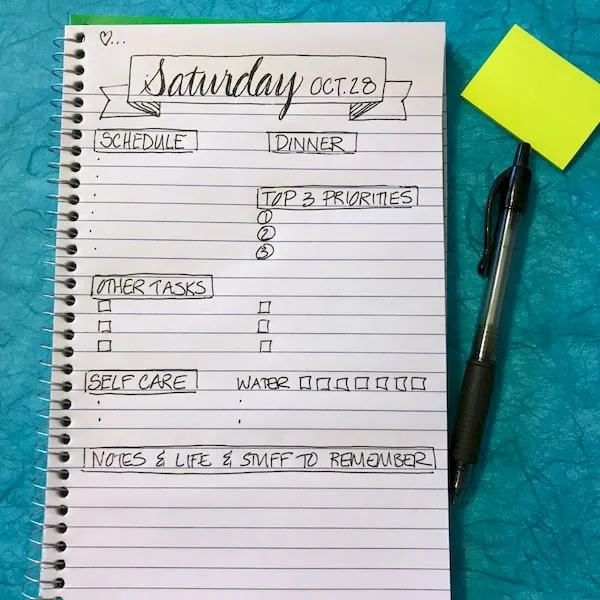 ♡...
Saturday OCT. 28
SCHEDULE
DINNER
TOP 3 PRIORITIES
1
2
3
OTHER TASKS
SELF CARE
WATER
NOTES & LIFE & STUFF TO REMEMBER